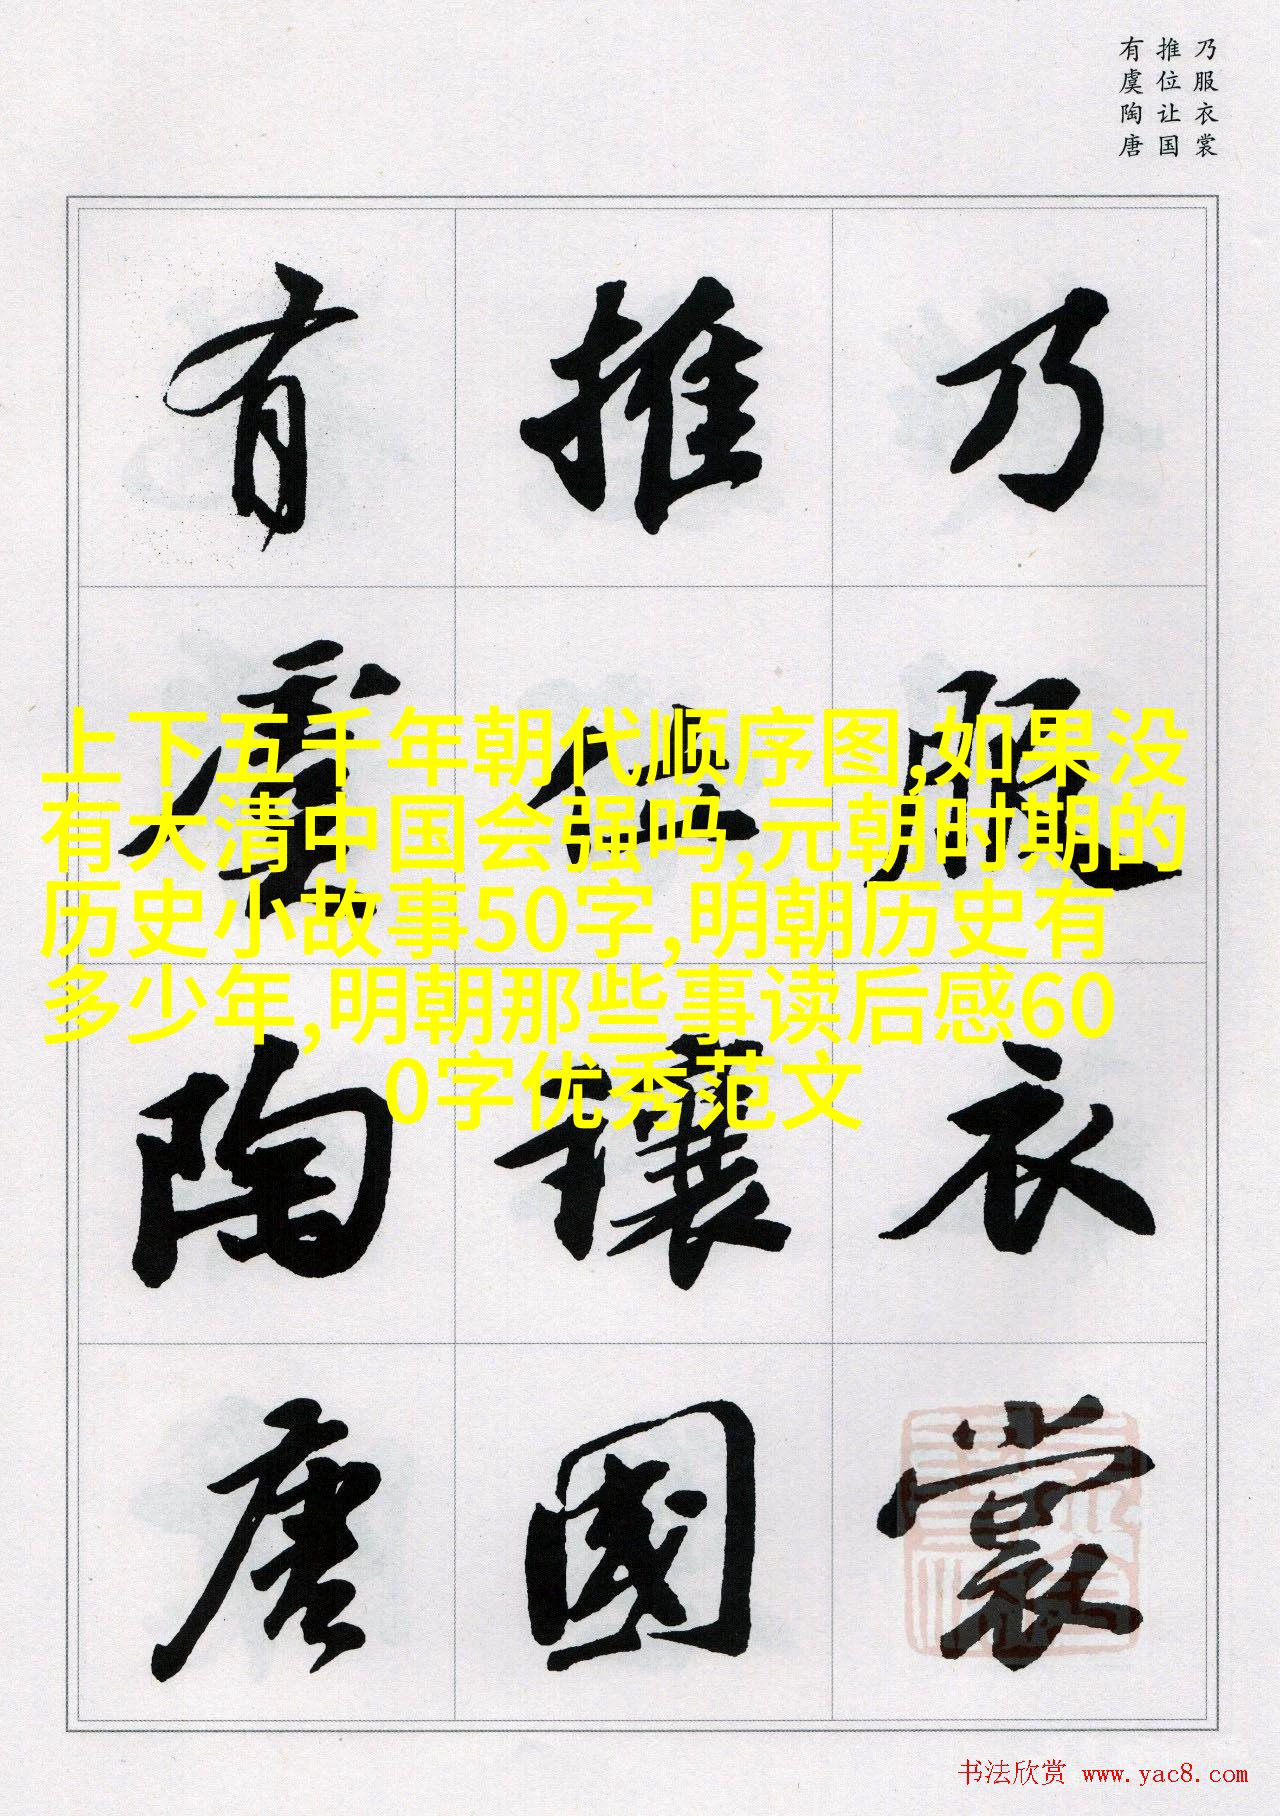 乃服衣裳
推位让国
有虞陶唐
乃服衣裳
推位讓國
有虞陶唐
上下五千年朝代顺序图,如果没
有大清中国会强吗,元朝时期的
历史小故事50字,明朝历史有
多少年,明朝那些事读后感60
0字优秀范文
书法欣赏 www.yac8.com